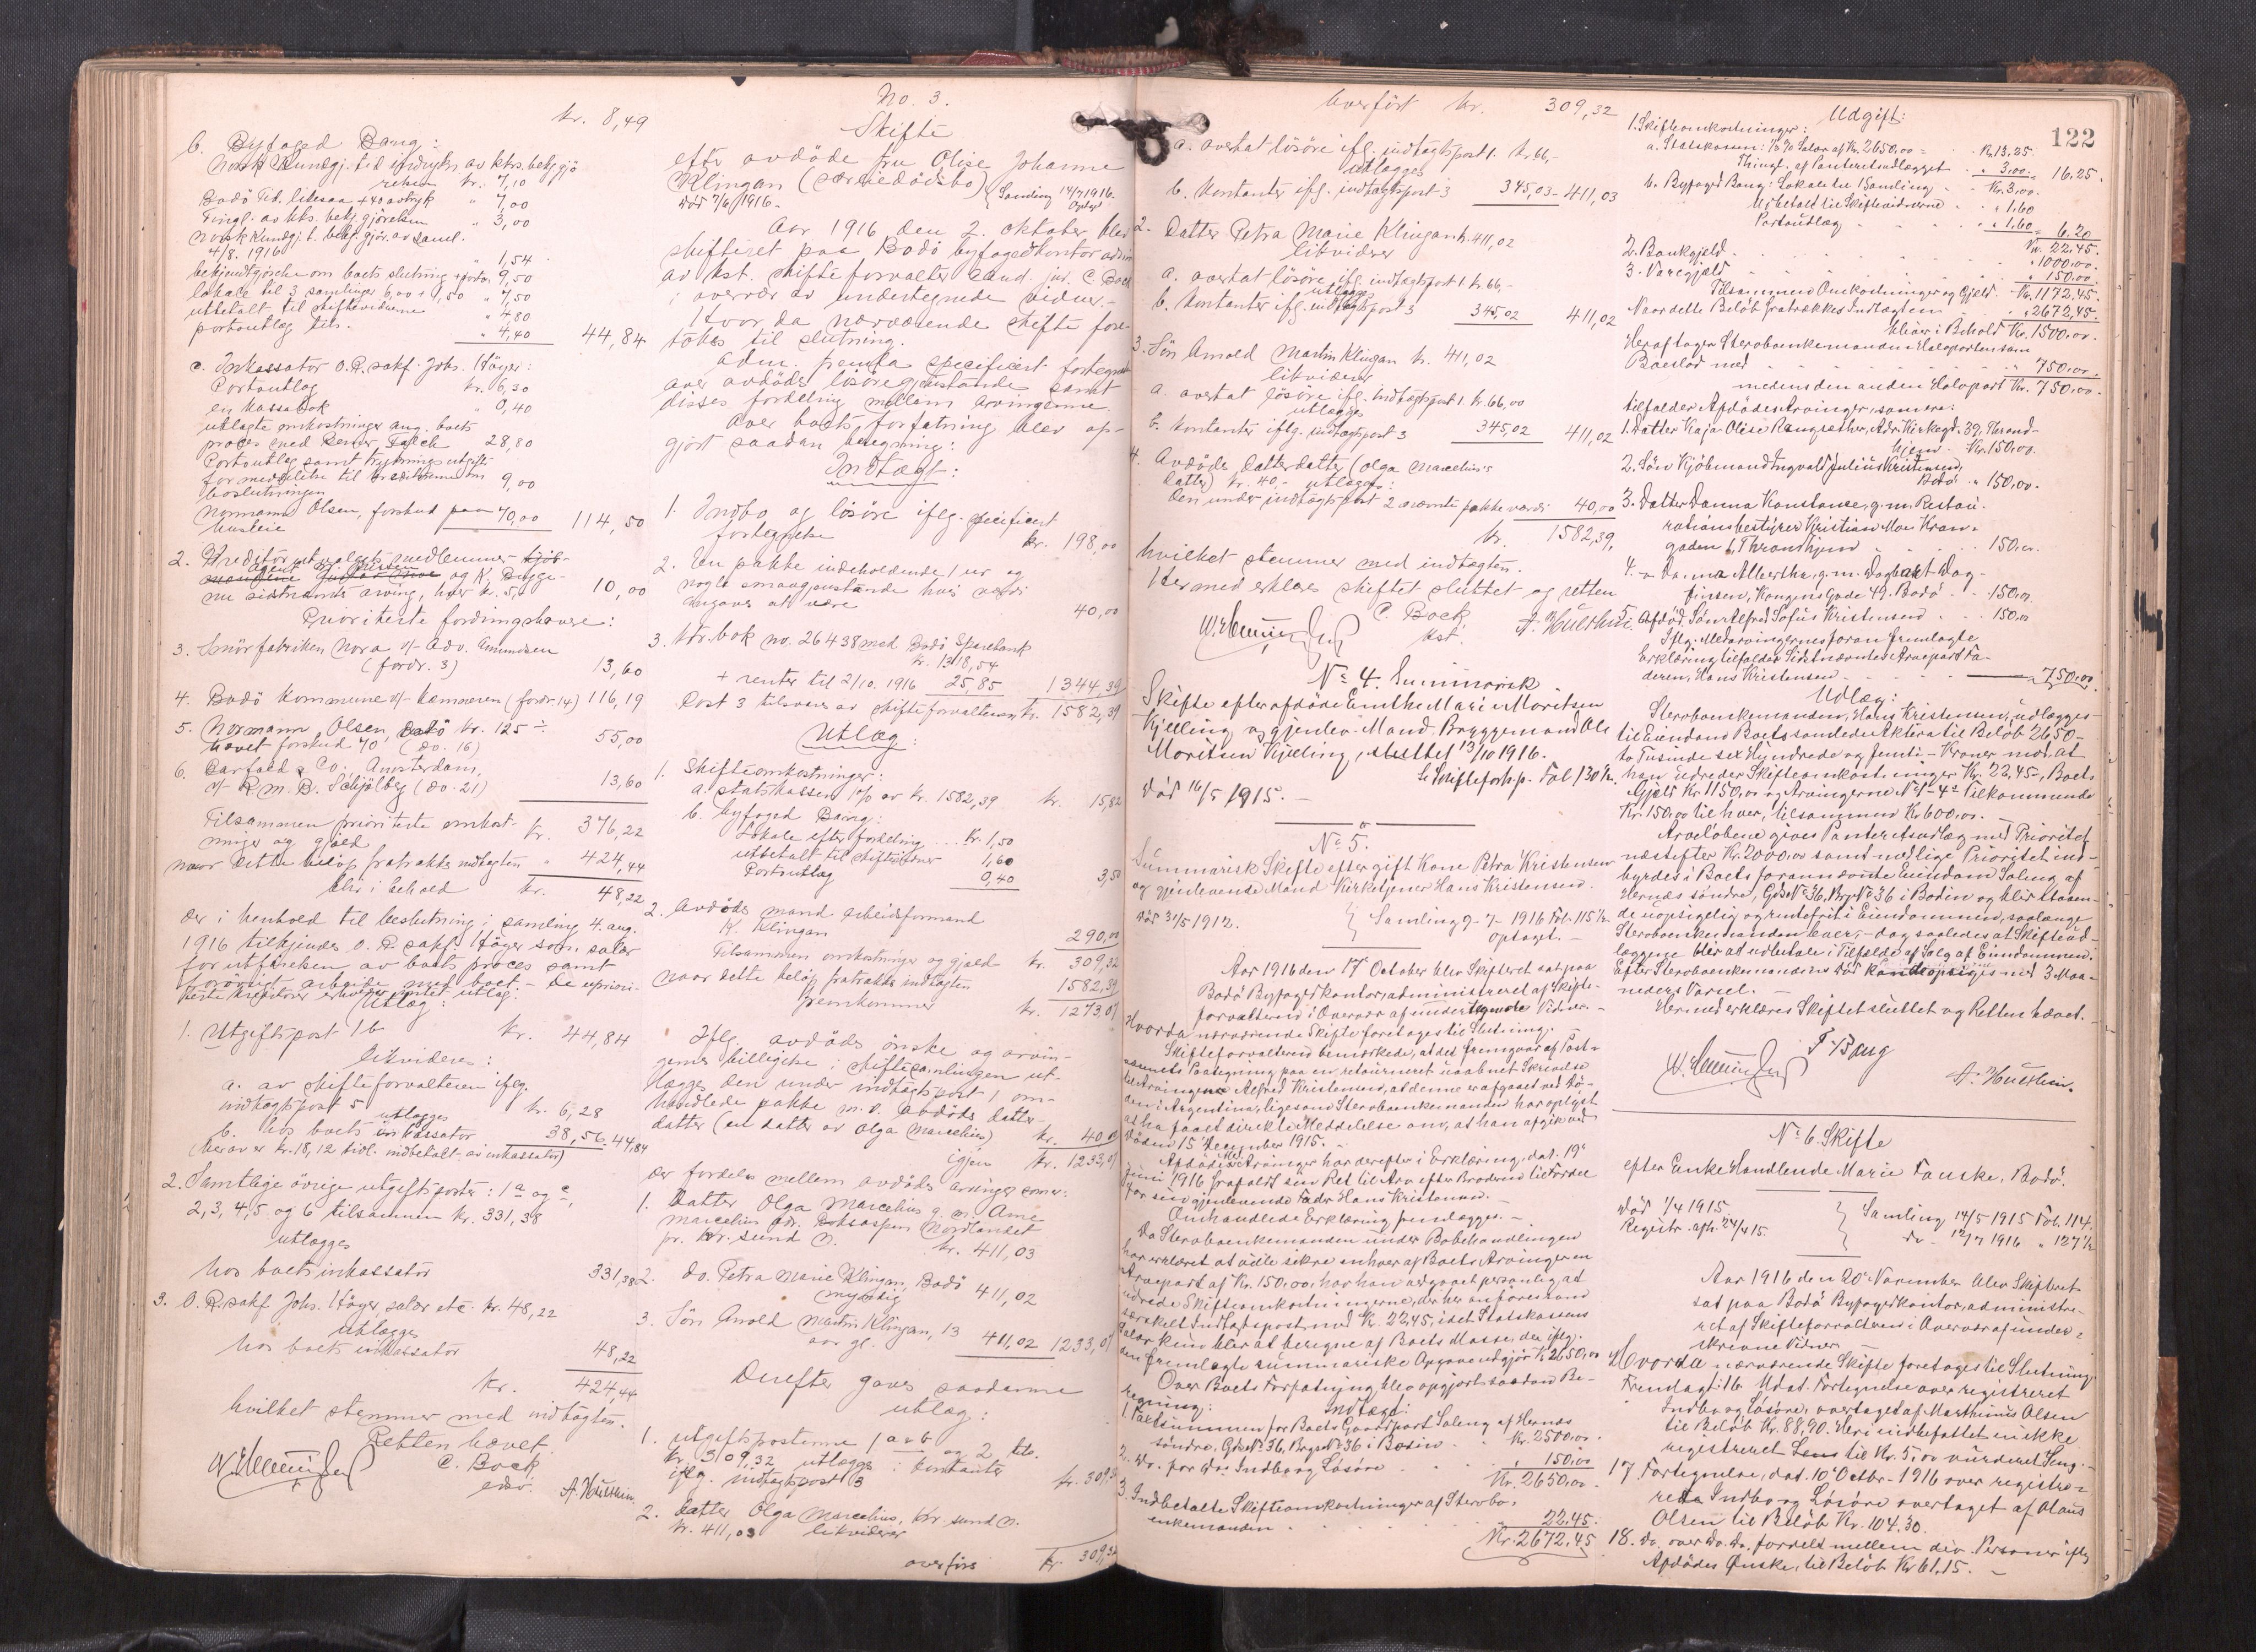 kr. 8,49
b. Byfoged Bang:
Norsk Kundgj. til indrykn. av kkrs. bekjgjø
relsen kr. 7,10
Bodø Tid. likesaa + 40 avtryk " 7,00
Tingl. av kks. bekj.gjørelsen " 3,00
Norsk Kundgj. t. bekj.gjør. av saml.
4/8. 1916 " 1,54
bekjendtgjørelse om boets slutning + porto 9,50
lokale til 3 samlinger 6,00 + 1,50 " 7,50
utbetalt til skiftevidnerne " 4,80
portoutlæg tils. " 4,40 44,84
c. Inkassator O.R. sakf. Johs. Høyer:
Portoutlæg kr. 6,30
en kassabok " 0,40
utlagte omkostninger ang. boets
proces med Falch 28,80
Portoutlæg samt trykningsutgift
for meddelelse til kreditorerne om
boslutningen 9,00
Normann Olsen, forskud paa
husleie 70,00 114,50
2. Kreditorutvalgets medlemmer
og K. Bugge
nu sidstnævntes arving, hver k. 5,- 10,00
Prioriterte fordringshavere:
3. Smørfabriken Nora v/ Adv. Amundsen
(fordr. 3) 13,60
4. Bodø kommune v/ kæmneren (fordr. 14) 116,19
5. Normann Olsen, Bodø kr. 125 ÷
hævet forskud 70 (do. 16) 55,00
6. & Co. Amsterdam,
v/ R. M. B. Schjølberg (do. 21) 13,60
Tilsammen prioriterte omkost-
ninger og gjæld kr. 376,22
naar dette beløp fratrækkes indtægten " 424,44
blir i behold kr. 48,22
der i henhold til beslutning i samling 4. aug.
1916 tilkjendes O. R. sakf. Høyer som salær
for utførelsen av boets proces samt
forøvrigt arbeide med boet. - De upriori-
terte kreditorer erholder intet utlæg.
Utlæg:
1. Utgiftspost 1b kr. 44,84
likvideres:
a. av skifteforvalteren iflg.
indtægtspost 5 kr. 6,28
utlægges
b. hos boets inkassator 38,56 44,84
(herav er kr. 18,12 tidl. indbetalt av inkassator)
2. Samtlige øvrige utgiftsposter: 1 a og c,
2, 3, 4, 5 og 6 tilsammen kr. 331,38
utlægges
hos boets inkassator 331,38
3. O. R. sakf. Johs. Høyer, salær etc. kr. 48,22
utlægges
hos boets inkassator 48,22
kr. 424,44
hvilket stemmer med indtægten.
Retten hævet.
C. Bock
edsv. A. Hulthin.
No. 3.
Skifte
efter avdøde fru Olise Johanne
Klingan (særskiedødsbo) Samling 14/7 1916.
død 7/6 1916. Optaget
Aar 1916 den 2. oktober blev
skifteret paa Bodø byfogedkontor adm.
av kst. skifteforvalter cand. jur. C Bock
i overvær av undertegnede vidner.-
Hvor da nærværende skifte fore-
tokes til slutning.
Adm. fremla specificert fortegnelse
over avdødes løsøregjenstande samt
disses fordeling mellem arvingerne.
Over boets forfatning blev op-
gjort saadan beregning:
Indtægt:
1. Indbo og løsøre iflg. specificert
fortegnelse kr. 198,00
2. En pakke indeholdende 1 ur og
nogle smaagjenstande hvis værdi
angaves at være 40,00
3. Ktr. bok no. 26438 med Bodø Sparebank
kr. 1318,54
+ renter til 2/10. 1916 25,85 1344,39
Post 3 tilsvares av skifteforvalteren kr. 1582,39
Utlæg:
1. Skifteomkostninger:
a. statskassen 1% av kr. 1582,39 kr. 15,82
b. byfoged Bang:
Lokale efter fordeling .... kr. 1,50
utbetalt til skiftevidner 1,60
Portoutlæg 0,40 3,50
2. Avdødes mand arbeidsformand
K. Klingan 290,00
Tilsammen omkostninger og gjæld kr. 309,32
naar dette beløp fratrækkes indtægten 1582,39
fremkommer kr. 1273,07
Iflg. avdødes ønske og arvin-
gernes billigelse i skiftesamlingen ut-
lægges den under indtægtspost 1 om-
handlede pakke m. v. avdødes datter-
datter (en datter av Olga Marcelius) kr. 40,00
igjen kr. 1233,07
der fordeles mellem avdødes arvinger som er:
1. Datter Olga Marcelius g. m. Arne
Marcelius adr. Nordlandet
pr. Kr. sund N. kr. 411,03
2. do. Petra Marie Klingan, Bodø
myndig 411,02
3. Søn Arnold Martin Klingan, 13
aar gl. 411,02 1233,07
Derefter gaves saadanne
utlæg:
1. utgiftsposterne 1 a & b og 2 tils.
kr. 309,32 utlægges i kontanter
iflg. indtægtspost 3 kr. 309,32
2. Datter Olga Marcelius, Kr. sund N.
kr. 411,03 likviderer
overføres kr. 309,32
122
Overført kr. 309,32
a. overtat løsøre iflg. indtægtspost 1. kr. 66,-
utlægges
b. Kontanter iflg. indtægtspost 3 345,03 - 411,03
2. Datter Petra Marie Klingan kr. 411,02
likviderer
a. overtat løsøre iflg. indtægtspost 1 kr 66,-
utlægges
b. Kontanter iflg. indtægtspost 3 345,02 411,02
3. Søn Arnold Martin Klingan kr. 411,02
likviderer
a. overtat løsøre iflg. indtægtspost 1. kr 66,00
utlægges
b. Kontanter iflg. indtægtspost 3 345,02 411,02
4. Avdødes datterdatter (Olga Marcelius's
datter) kr. 40,- utlægges:
den under indtægtspost 2 nævnte pakke værdi 40,00
kr. 1582,39,
hvilket stemmer med indtægten.
Hermed erklæres skiftet sluttet og retten
C. Bock
kst.
A. Hulthin.
No 4. Summarisk
Skifte efter afdøde Emthe Marie Moritsen
Kjelling og gjenlev. Mand Bryggemand Ole
Moritsen Kjelling, sluttet 13/10 1916.
Se Skifteforh.p. Fol 130 1/2.
død 16/5 1915. -
No 5.
Summarisk Skifte efter gift Kone Petra Kristensen
og gjenlevende Mand Kirketjener Hans Kristensen.
død 31/5 1912. Samling 7-7-1916 Fol. 115 1/2.
optaget. -
Aar 1916 den 17 October blev Skifteret sat paa
Bodø Byfogedkontor, administreret af Skifte-
forvalteren i Overvær af undertegnede Vidner. -
Hvorda nærværende Skifte foretages til Slutning.
Skifteforvalteren bemærkede, at det fremgaar af Post-
væsenets Paategning paa en returneret uaabnet Skrivelse
til Arvingen Alfred Kristensen, at denne er afgaaet ved Dø-
den i Argentina, ligesom Sterboenkemanden har oplyst
at ha faaet direkte Meddelelse om, at han afgik ved
Døden 15 December 1915. -
Afdødes Medarvinger har derefter i Erklæring, dat. 19de
Juni 1916 frafaldt sin Ret til Arv efter Broderen til Fordel
for sin gjenlevende Fader Hans Kristensen. -
Omhandlede Erklæring fremlægges. -
Da Sterboenkemanden under Bobehandlingen
har erklæret at ville sikre enhver af Boets Arvinger en
Arvepart af Kr. 150,00, har han vedtaget personlig at
udrede Skifteomkostningerne, der her anføres som
særskilt Indtægtspost med Kr. 22,45, idet Statskassens
Salær kun blir at beregne af Boets Masse, der iflg.
den fremlagte summariske Opgave udgjør Kr 2650,00
Over Boets Forfatning blev opgjort saadan Be-
regning:
Indtægt:
1. Taxtsummen for Boets Gaardpart Soleng af Hernæs
søndre, Gds No 36, Brgs No 36 i Bodin Kr. 2500,00.
2. Do. for do. Indbo og Løsøre " 150,00
Kr. 2650,00.
3. Indbetalte Skifteomkostninger af Sterbo-
enkemanden 22.45.
Kr. 2672,45
Udgift:
1. Skifteomkostninger:
a. Statskassen: ½ % Salær af Kr. 2650,00 = Kr. 13,25.
Thingl. af Panteretsudlægget " 3,00 = 16.25.
b. Byfoged Bang: Lokale til 1 Samling Kr. 3,00.
Udbetalt til Skiftevidnerne " 1,60
Portoudlæg " 1,60 = 6.20
Kr. 22.45.
2. Bankgjæld " 1000,00.
3. Varegjæld " 150,00.
Tilsammen Omkostninger og Gjæld. Kr. 1172,45.
Naar dette Beløb fratrækkes Indtægten " 2672,45.
bliver i Behold Kr. 1500,00.
Heraf tager Sterboenkemanden Halvparten som
Boeslod med " 750,00.
medens den anden Halvpart Kr. 750,00.
tilfalder Afdødes Arvinger, som ere:
1. Datter Kaja Olise Rangsæther, Adr. Kirkegt. 39, Thrond-
hjem. Kr. 150,00.
2. Søn Kjøbmand Ingvald Julius Kristensen,
Bodø " 150,00.
3. Datter Danna Konstanse, g. m. Restau-
rationsbestyrer Kristian Moe Kron-
gaden 6, Throndhjem 150,00.
4. Do. Alberthe, g. m. Dag-
finsen, Kongens Gade 49. Bodø 150,00
5. Afdøde Søn Alfred Sofus Kristensen 150,00
Iflg. Medarvingernes foran fremlagte
Erklæring tilfalder Sidstnævntes Arvepart Fa-
deren, Hans Kristensen 750,00.
Udlæg:
Sterboenkemanden, Hans Kristensen, udlægges
til Eiendom Boets samlede Aktiva til Beløb 2650 -
to Tusinde sex Hundrede og femti - Kroner mod at
han udreder Skifteomkostninger Kr. 22.45, Boets
Gjæld Kr. 1150,00 og Arvingerne No 1-4 tilkommende
Kr. 150,00 til hver, tilsammen Kr 600,00. -
Arvelodene gives Panteretsudlæg med Prioritet
næst efter Kr. 2000,00 samt med lige Prioritet ind-
byrdes i Boets forannævnte Eiendom Soleng af
Hernæs søndre, Gds No 36, Brgs No 36 i Bodin og blir staaen-
de uopsigelig og rentefrit i Eiendommen, saalænge
Sterboenkemanden lever, - dog saaledes at Skifteud-
læggene blir at udbetale i Tilfælde af Salg af Eiendommen.
Efter Sterboenkemandens Død kan de opsiges med 3 Maa-
neders Varsel. -
Hermed erklæres Skiftet sluttet og Retten hævet.
F Bang
A. Hulthin.
No 6. Skifte
efter Enke Handlende Marie Fauske, Bodø.
død 1/4 1915.
Registr. afh. 24/4 15.
Samling 14/5 1915 Fol. 114.
do - 12/7 1916 " 127 1/2
Aar 1916 den 20 November blev Skifteret
sat paa Bodø Byfogedkontor, administre-
ret af Skifteforvalteren i Overvær af under-
skrevne Vidner. -
Hvorda nærværende Skifte foretages til Slutning.
Fremlagt: 16. Udat. Fortegnelse over registreret
Indbo og Løsøre, overtaget af Marthinus Olsen
til Beløb Kr. 88,90. Heri indbefattet en ikke
registreret til Kr. 5,00 vurderet Seng. -
17. Fortegnelse, dat. 10 Octbr. 1916 over registre-
rede Indbo og Løsøre overtaget af Olaus
Olsen til Beløb Kr. 104.30.
18. Do. over do. do. fordelt mellem div. Personer iflg
Afdødes Ønske, til Beløb Kr 61,15. -